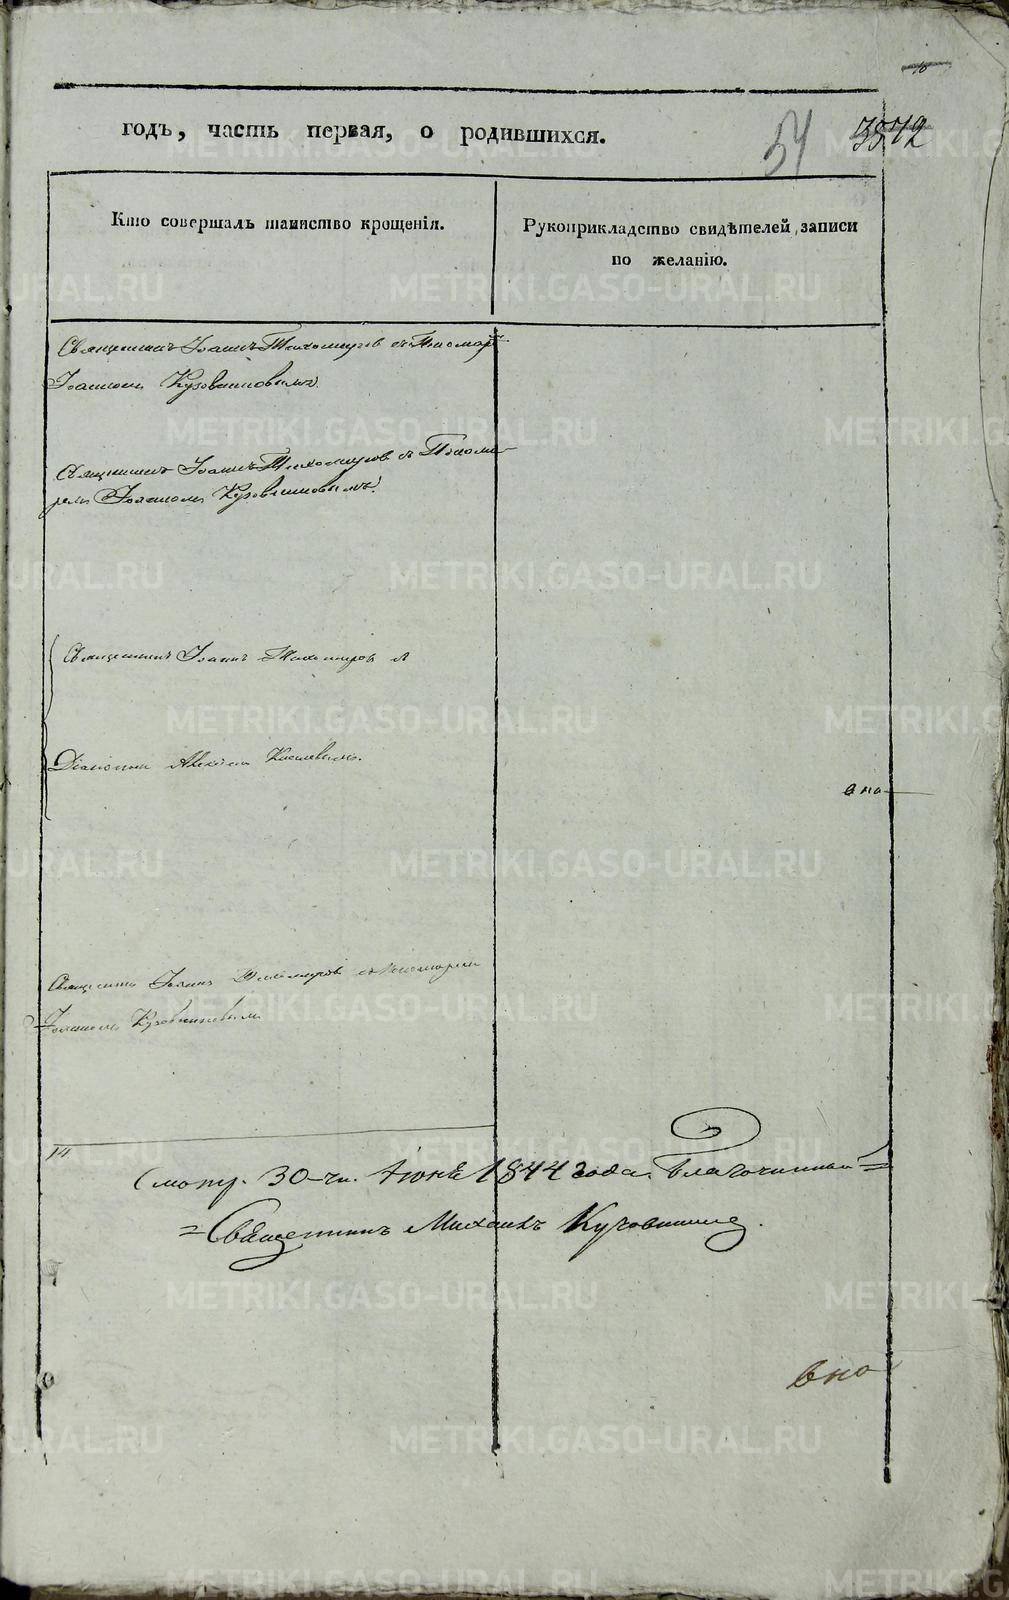 годъ, часть первая, о родившихся.
54
Кто совершалъ таинство крощенія.
Рукоприкладство свидѣтелей записи
по желанію.
Священникъ Іоаннъ Тихомировъ съ Пономар
Іоанномъ Кузовниковымъ.
Священникъ Іоаннъ Тихомировъ съ Понома-
ремъ Іоанномъ Кузовниковымъ.
Священникъ Іоаннъ Тихомировъ съ
Діакономъ Алексіемъ Киселевымъ.
вно
Священникъ Іоаннъ Тихомировъ съ Пономаремъ
Іоанномъ Кузовниковымъ
Смотр. 30-го Іюнѣ 1844 года. Благочинный =
= Священникъ Михаилъ
вно
METRIKI.GASO-URAL.RU